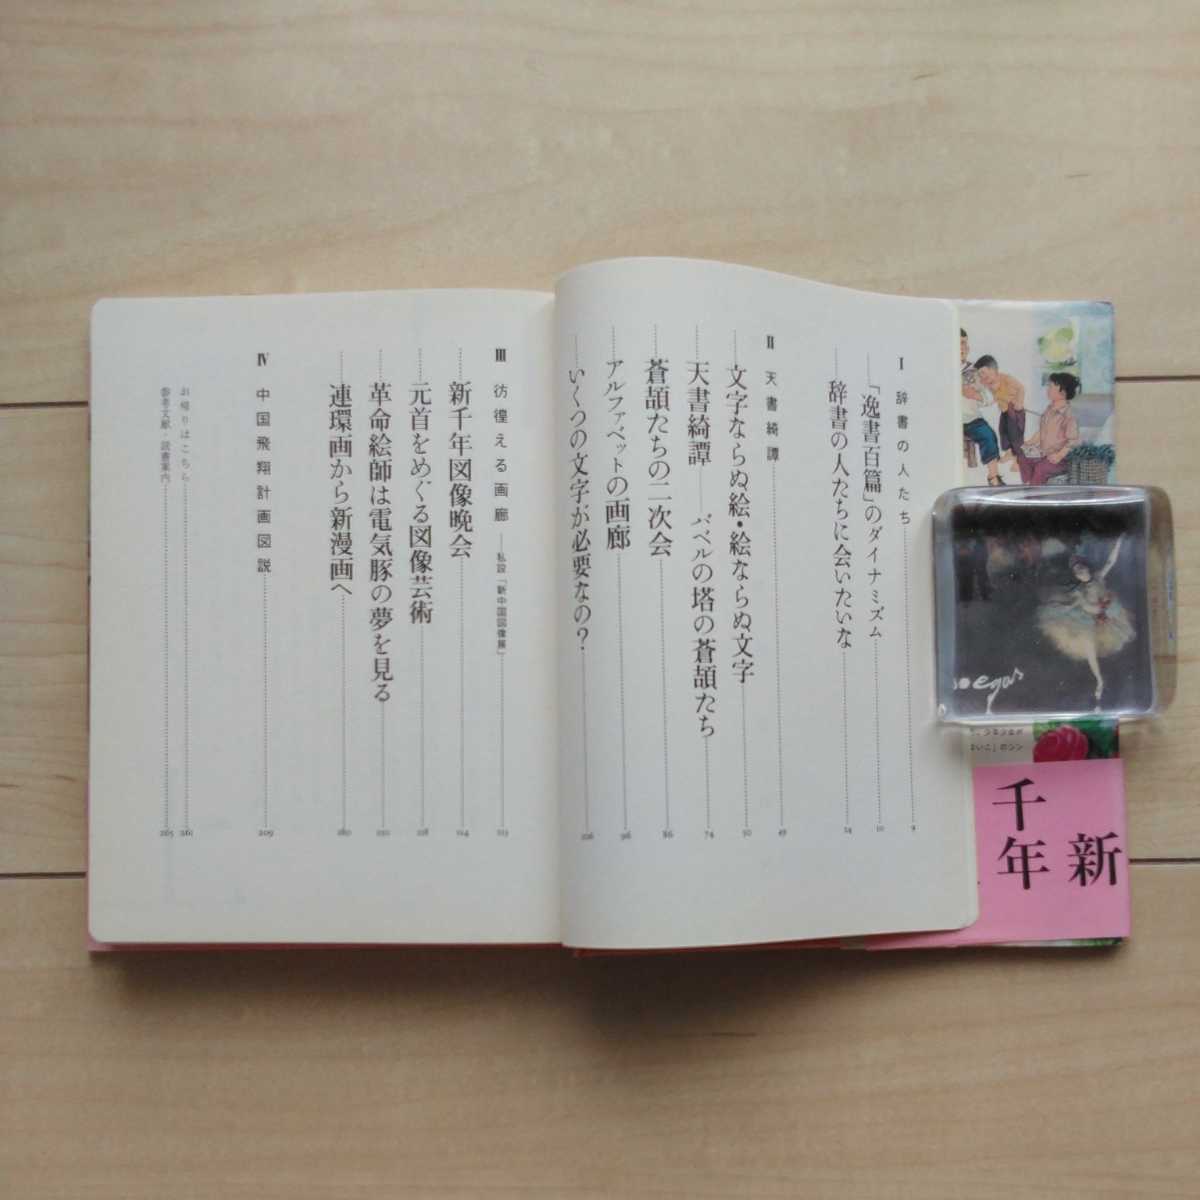 I 辞書の人たち……9
「逸書百篇」のダイナミズム……10
辞書の人たちに会いたいな……24
II 天書綺譚……49
文字ならぬ絵・絵ならぬ文字……50
天書綺譚――バベルの塔の蒼頡たち……74
蒼頡たちの二次会……86
アルファベットの画廊……96
いくつの文字が必要なの?……106
III 彷徨える画廊――私設「新中国図像展」……113
新千年図像晩会……114
元首をめぐる図像芸術……128
革命絵師は電気豚の夢を見る……150
連環画から新漫画へ……180
IV 中国飛翔計画図説……209
お帰りはこちら……261
参考文献・読書案内……265
新
千年